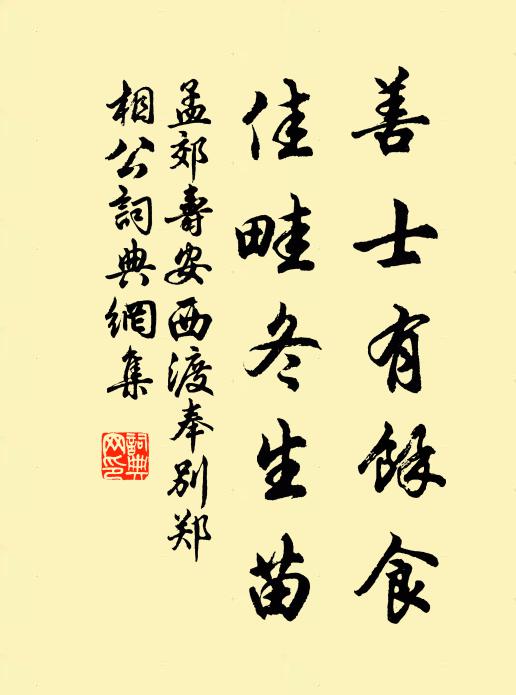 善士有餘食
佳畦冬生苗
孟郊壽安西渡奉别郑
相公詞典網集
詞典
网印